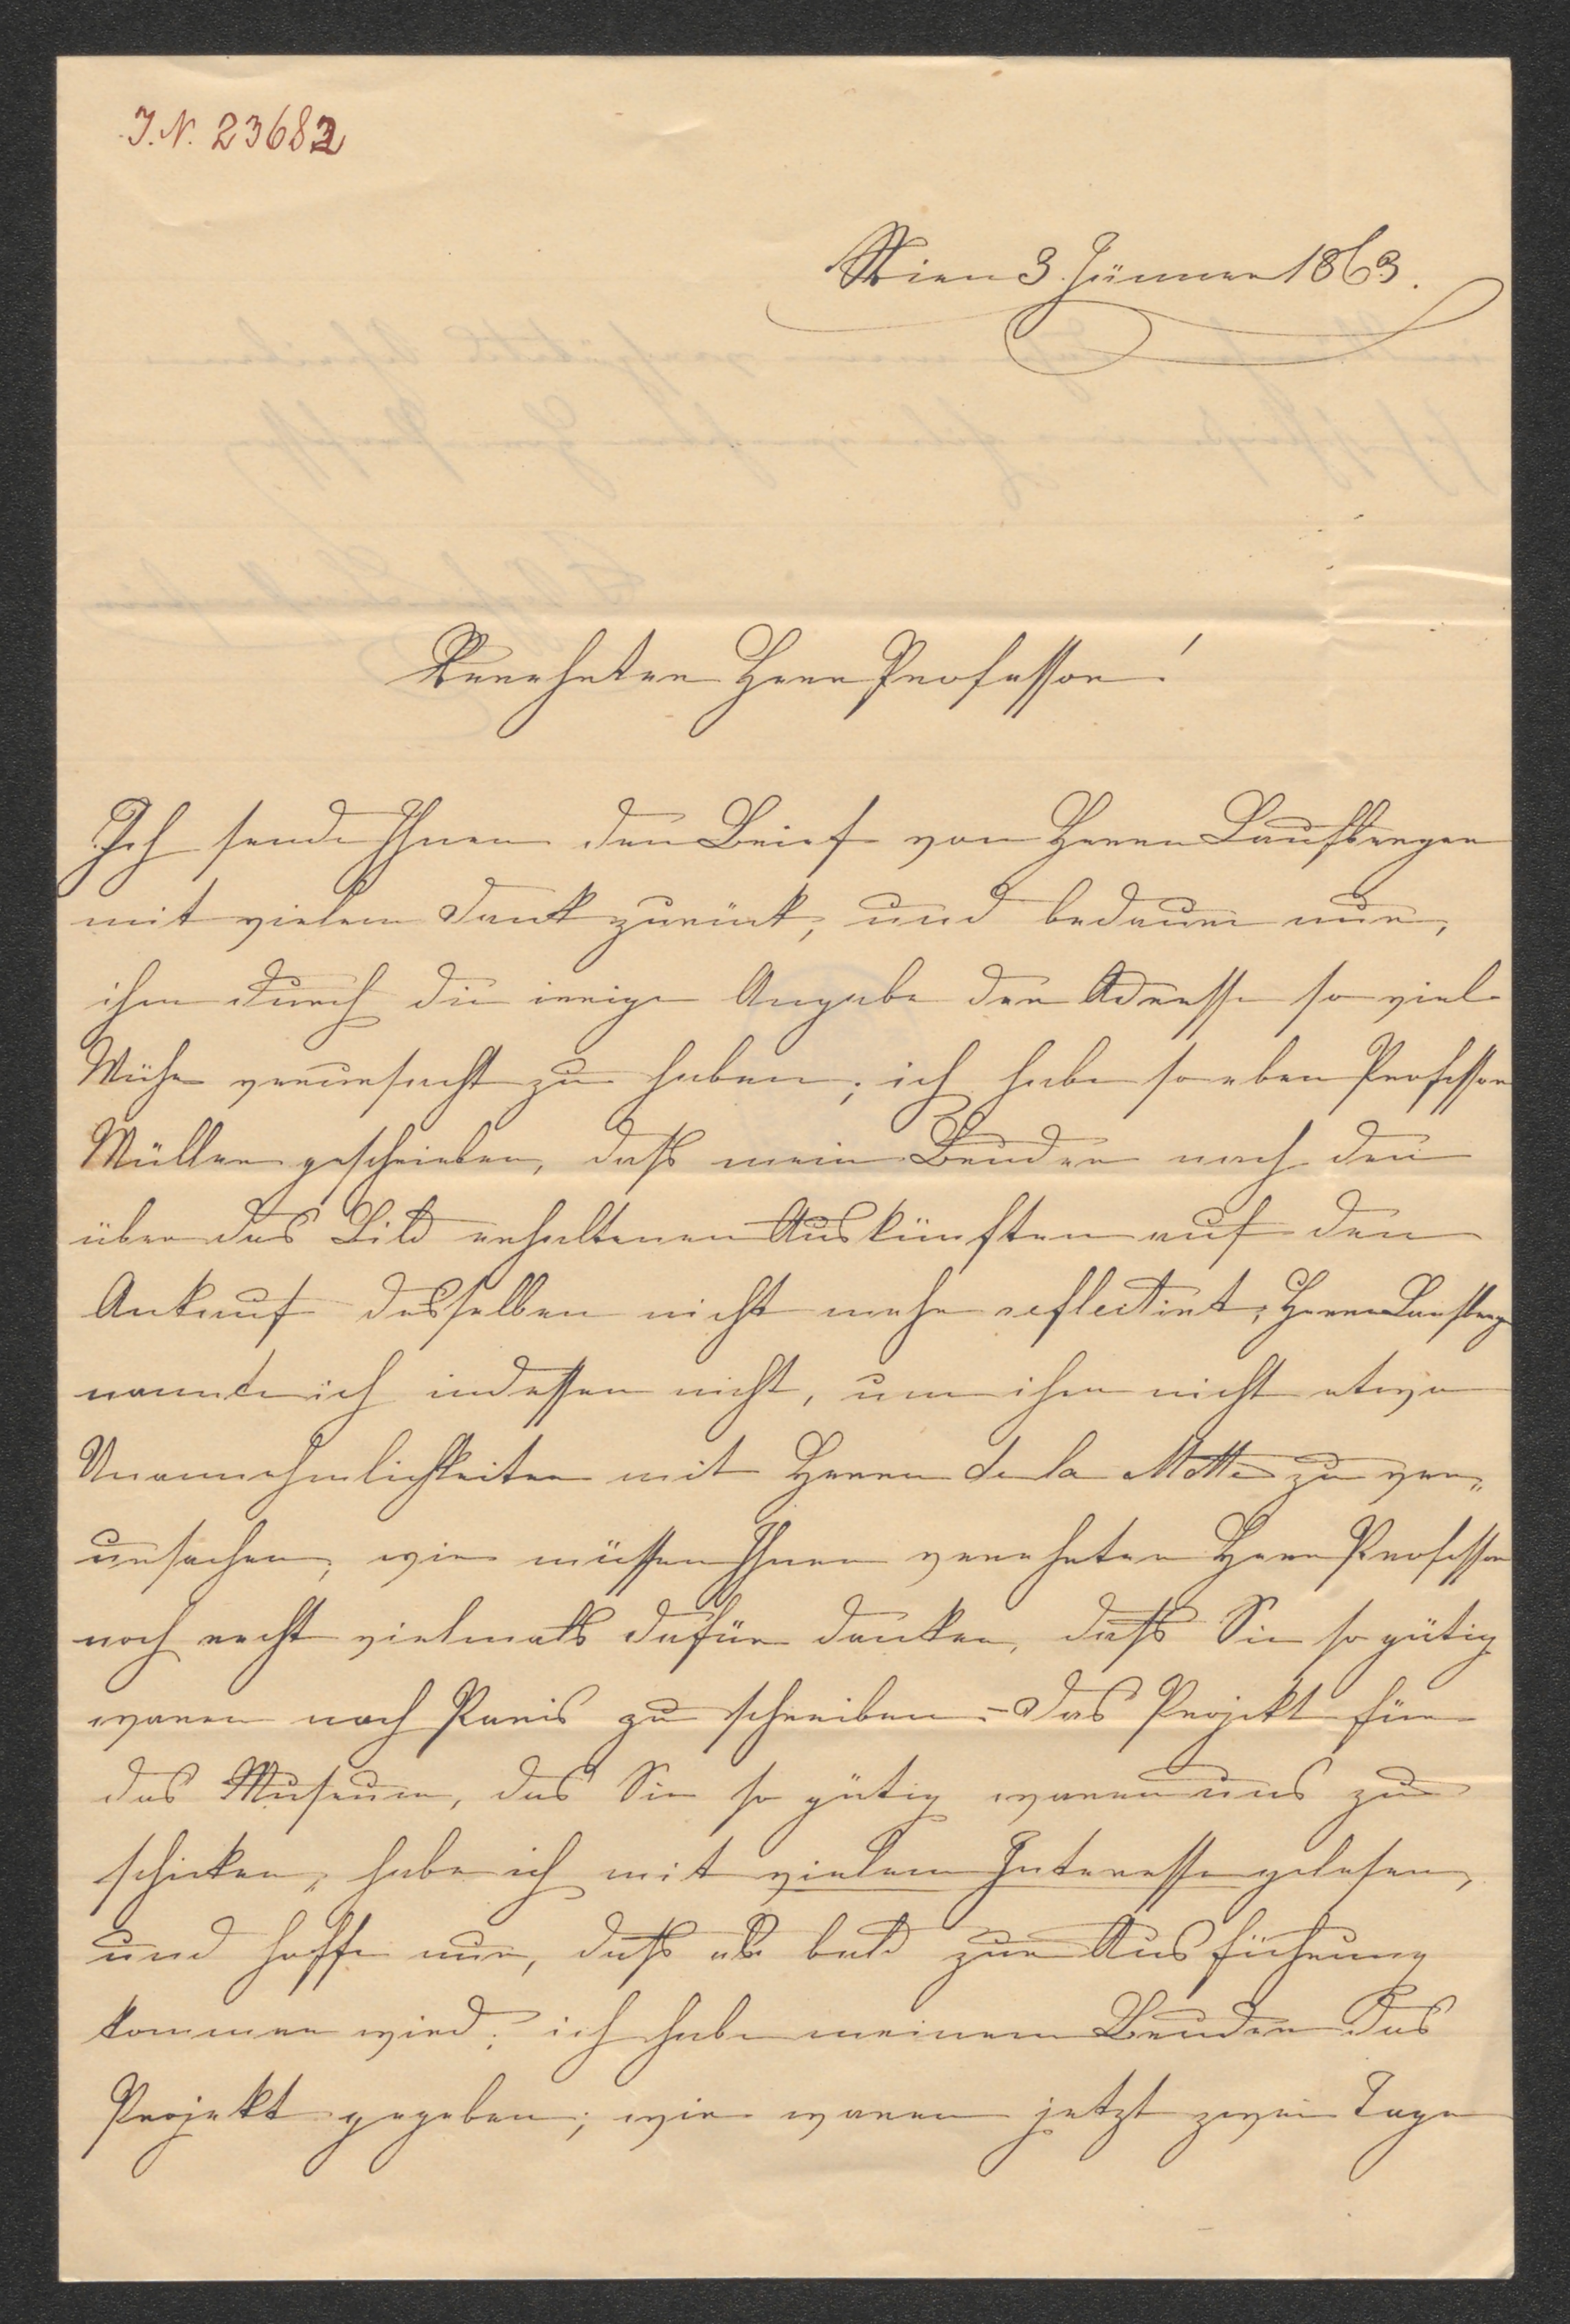 J. N. 23682
Wien 3. Jänner 1863.
Verehrter Herr Professor!
Ich sende Ihnen den Brief von Herrn Laufberger
mit vielem Dank zurück, und bedaure nur,
ihm durch die irrige Angabe der Adresse so viel
Mühe verursacht zu haben; ich habe soeben Professor
Müller geschrieben, daß mein Bruder nach den
über das Bild erhaltenen Auskünften auf den
Ankauf desselben nicht mehr reflectirt, Herrn Laufberg
nannte ich indessen nicht, um ihm nicht etwa
Unannehmlichkeiten mit Herrn de la Motte zu ver„
ursachen, wir müssen Ihnen verehrter Herr Professor
noch recht vielmals dafür danken, daß Sie so gütig
waren nach Paris zu schreiben. – Das Projekt für
das Museum, das Sie so gütig waren uns zu
schicken, habe ich mit vielem Interesse gelesen,
und hoffe nur, daß es bald zur Ausführung
kommen wird; ich habe meinem Bruder das
Projekt gegeben; wir waren jetzt zwei Tage